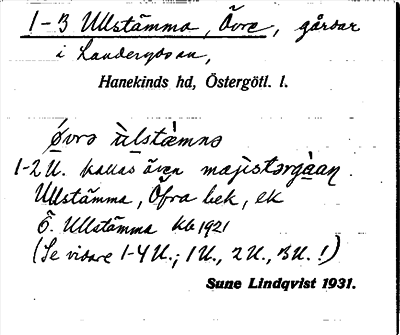 1-3 Ullstämma, Övre, gårdar
i Landeryds sn,
Hanekinds hd, Östergötl. l.
øvrə ùlstæmna
1-2 U. kallas även majistərgàan.
Ullstämma, Öfra bek, ek
Ö. Ullstämma kb 1921
(Se vidare 1-4 U.; 1 U., 2 U., 3 U. !)
Sune Lindqvist 1931.